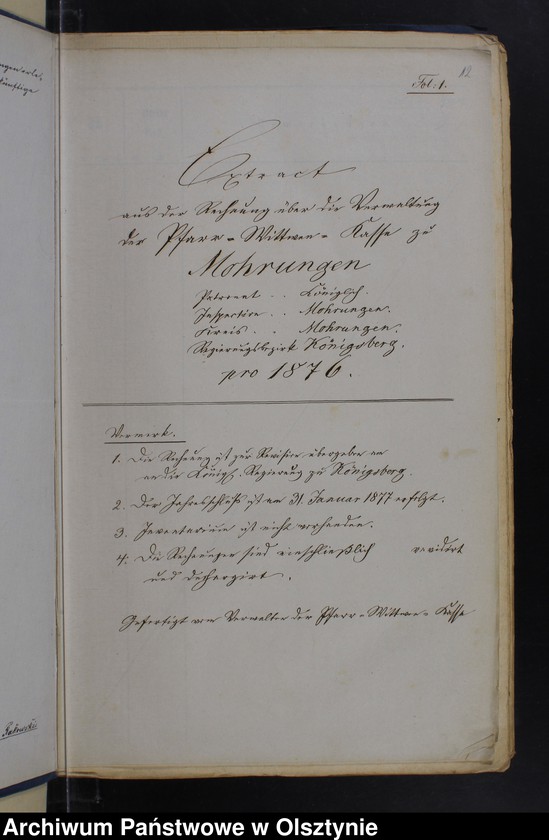 12
Fol. 1.
Extract
aus der Rechnung über die Verwaltung
der Pfarr-Wittwen-Kasse zu
Mohrungen
Patronat . . Königlich.
Inspection . . Mohrungen.
Kreis . . Mohrungen.
Regierungsbezirk Königsberg.
pro 1876.
Vermerk.
1. Die Rechnung ist zur Revision übergeben am
an die Königl. Regierung zu Königsberg.
2. Der Jahresschluß ist am 31. Januar 1877 erfolgt.
3. Inventarium ist nicht vorhanden.
4. Die Rechnungen sind einschließlich revidirt
und dechargirt.
Gefertigt vom Verwalter der Pfarr-Wittwen-Kasse
Archiwum Państwowe w Olsztynie